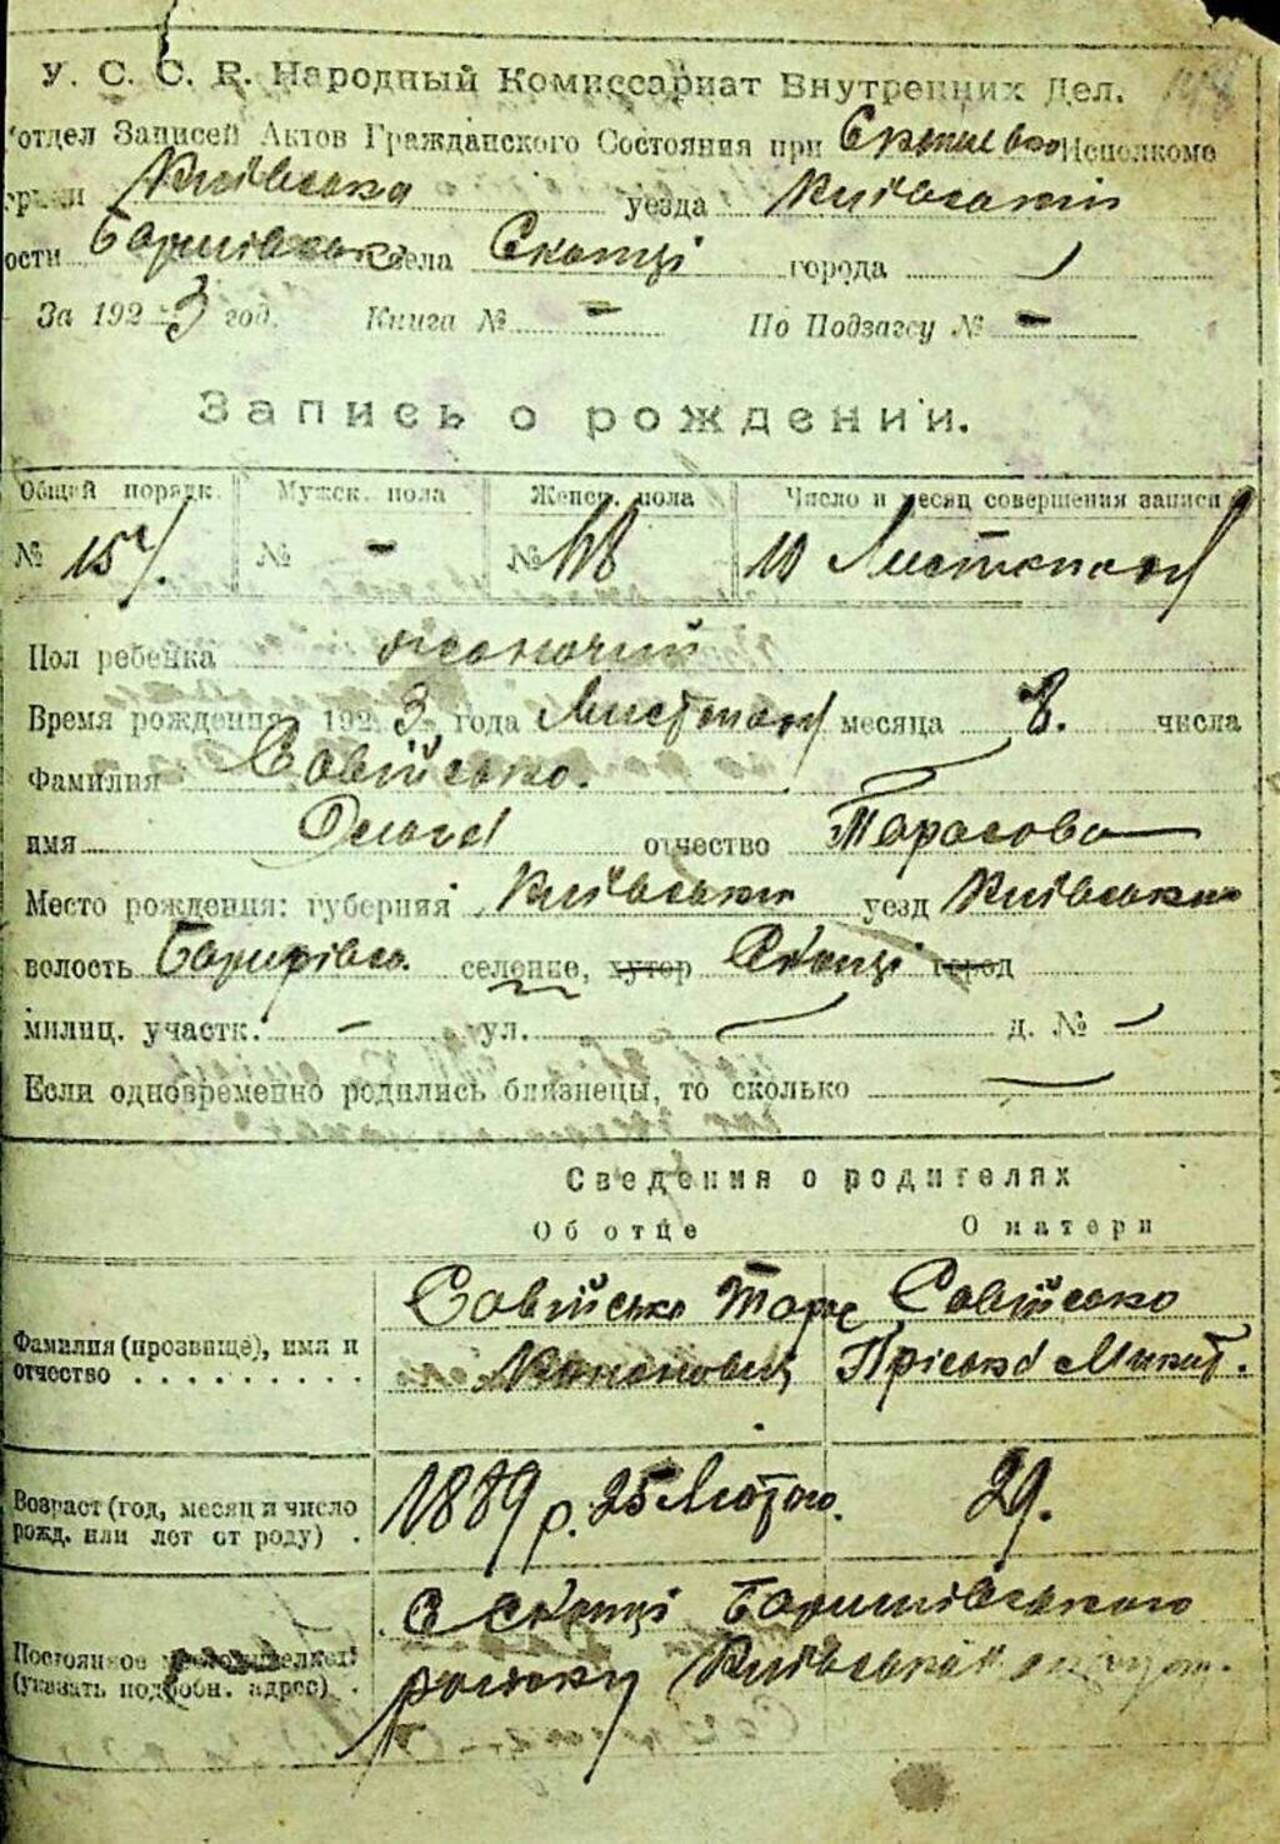 У. С. С. Р. Народный Комиссариат Внутренних Дел.
отдел Записей Актов Гражданского Состояния при Исполкоме
Київська уезда Київський
ости села Скопці города
За 1923 год. Книга № - По Подзагсу № -
Запись о рождении.
Общей порядк. Мужск. пола Женск. пола Число и месяц совершения записи
№ № - № 10 Листопада
Пол ребенка жіночий
Время рождения 1923 года Листопада месяца 8. числа
Фамилия Савійсько.
имя отчество Тарасова
Место рождения: губерния Київська уезд Київський
волость селение, хутор Скопці город
милиц. участк. - ул. — д. № —
Если одновременно родились близнецы, то сколько —
Сведения о родителях
Об отце О матери
Фамилия (прозвище), имя и отчество
Савійсько Тарас Савійсько
Кононович Пріська Микит.
Возраст (год, месяц и число рожд. или лет от роду)
1889 р. 25 Лютого. 29.
Постоянное
(указать подробн. адрес)
С Скопці Баришівського
району Київської